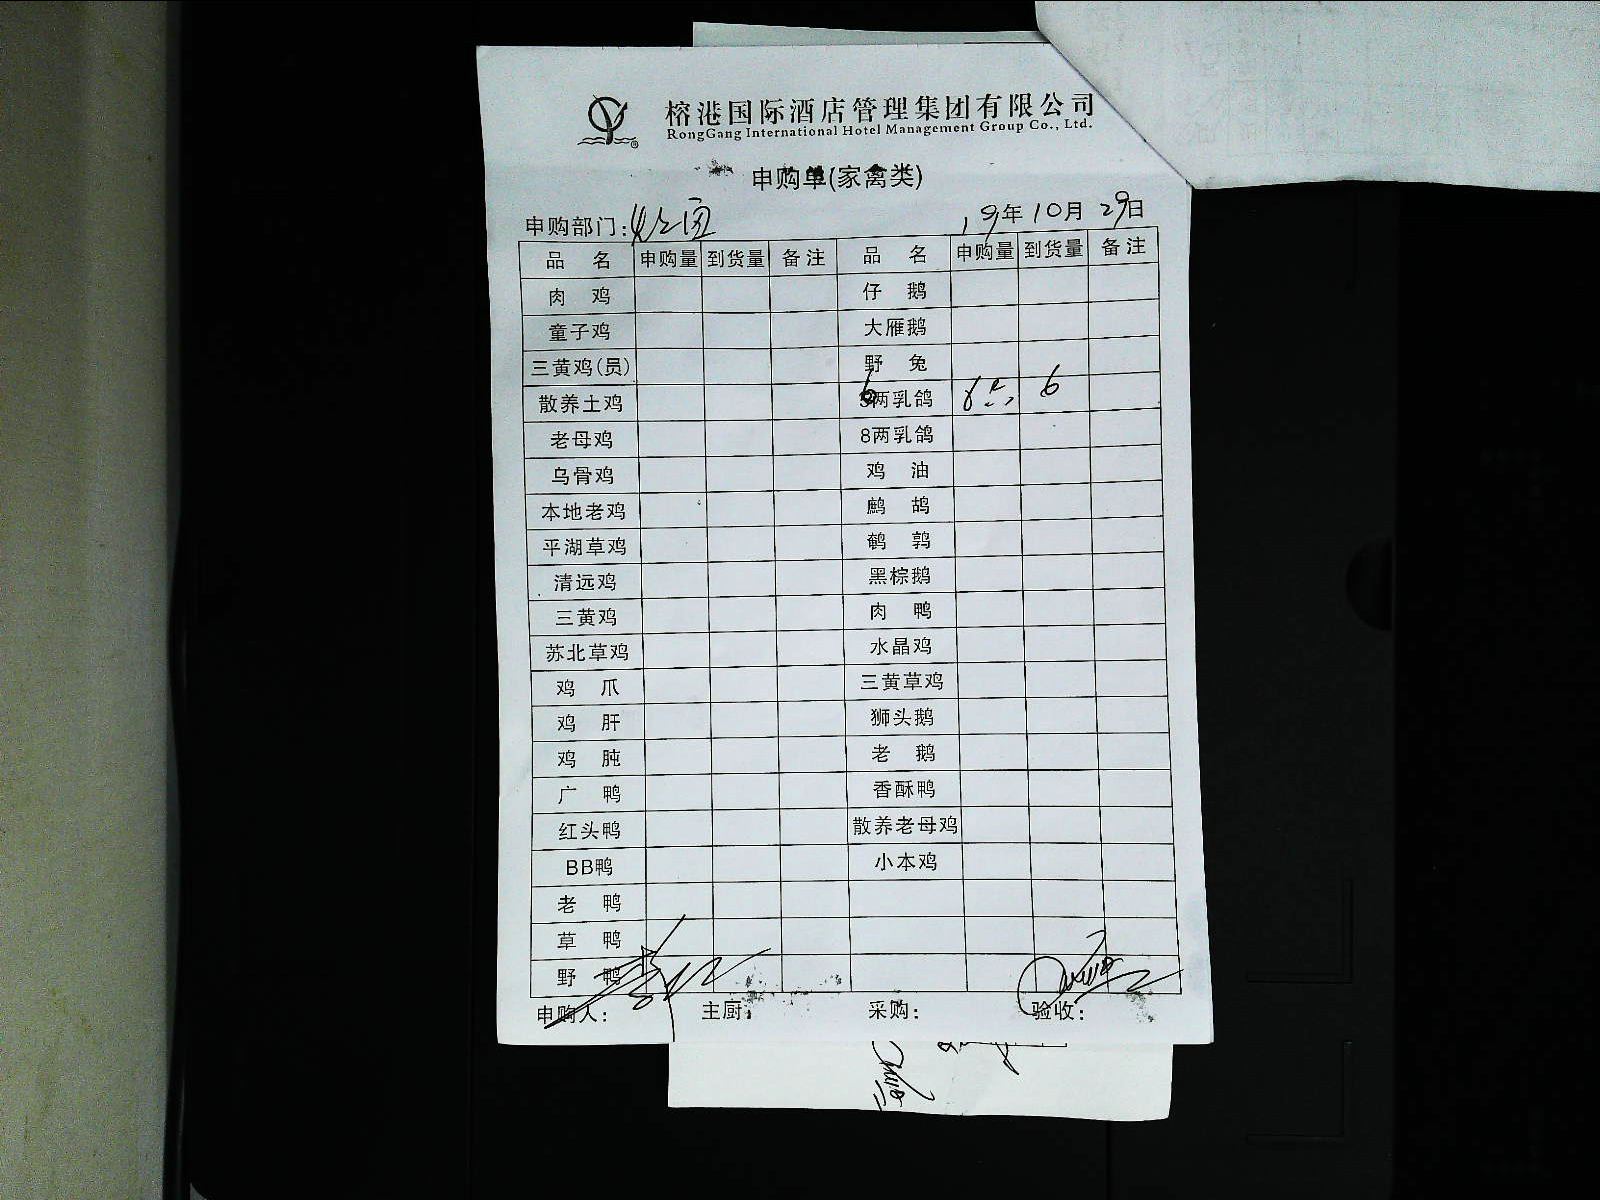 榕港国际酒店管理集团有限公司
RongGang International Hotel Management Group Co., Ltd.
申购单(家禽类)
申购部门: 19年10月29日
品 名 申购量 到货量 备注 品 名 申购量 到货量 备注
肉 鸡 仔 鹅
童子鸡 大雁鹅
三黄鸡(员) 野 兔
散养土鸡 6两乳鸽 6
老母鸡 8两乳鸽
乌骨鸡 鸡 油
本地老鸡 鹧 鸪
平湖草鸡 鹌 鹑
清远鸡 黑棕鹅
三黄鸡 肉 鸭
苏北草鸡 水晶鸡
鸡 爪 三黄草鸡
鸡 肝 狮头鹅
鸡 肫 老 鹅
广 鸭 香酥鸭
红头鸭 散养老母鸡
BB鸭 小本鸡
老 鸭
草 鸭
野 鸭
申购人: 主厨: 采购: 验收: